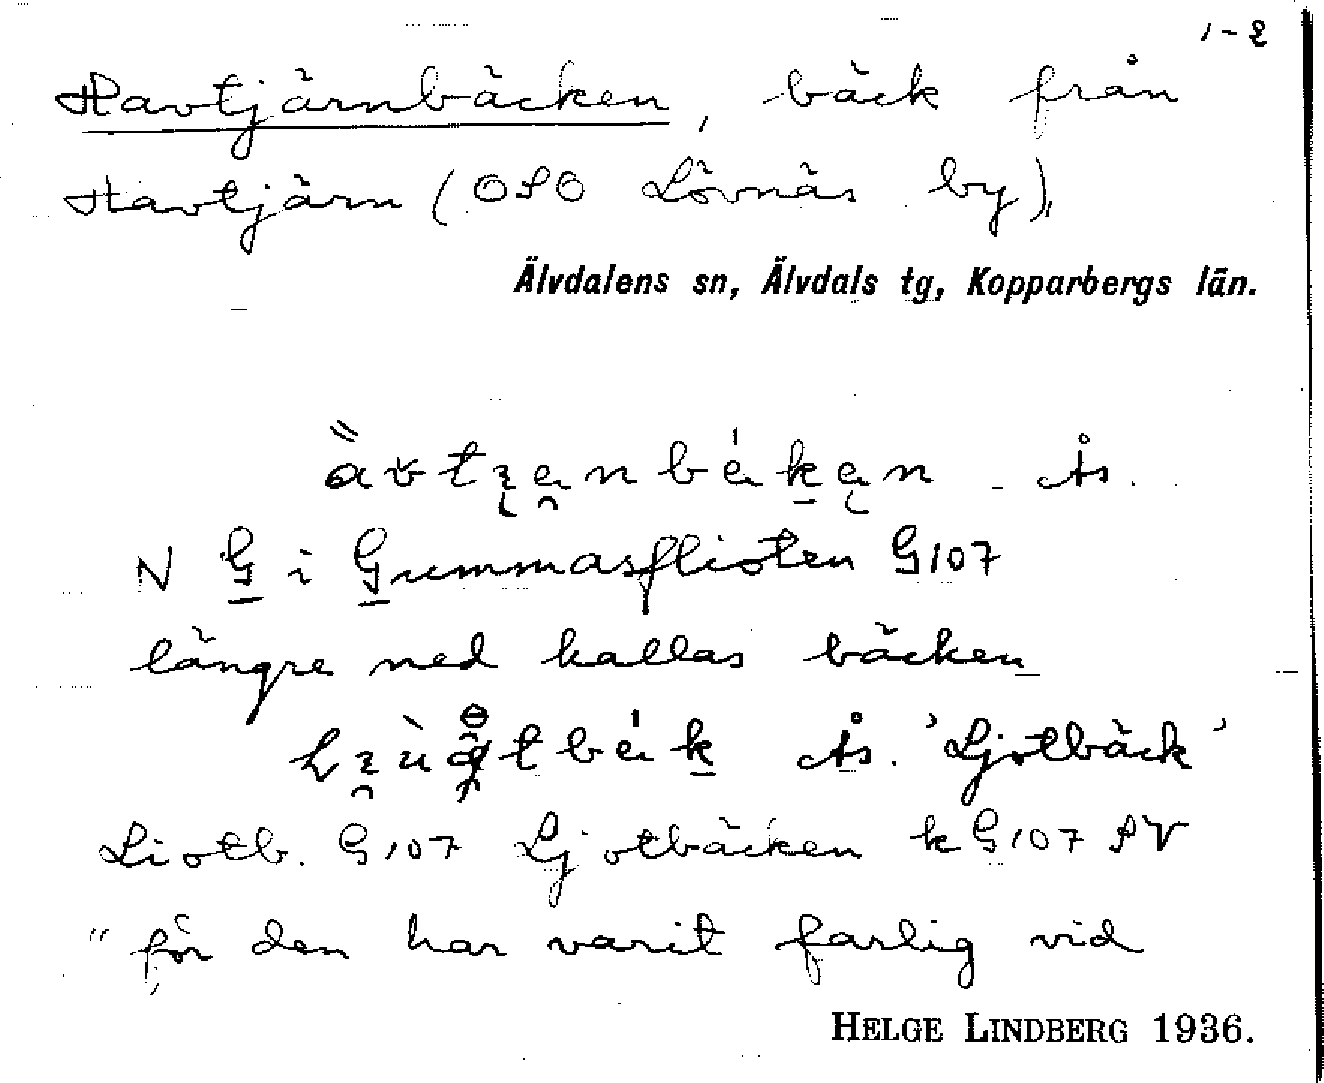 1-2
Havtjärnbäcken, bäck från
Havtjärn (OSO Lövnäs by),
Älvdalens sn, Älvdals tg, Kopparbergs län.
Ås.
N G i Gummasflioten G107
längre ned kallas bäcken
Ås. 'Ljotbäck'
Liotb. G107 Ljotbäcken k G107 SV
"för den har varit farlig vid
HELGE LINDBERG 1936.